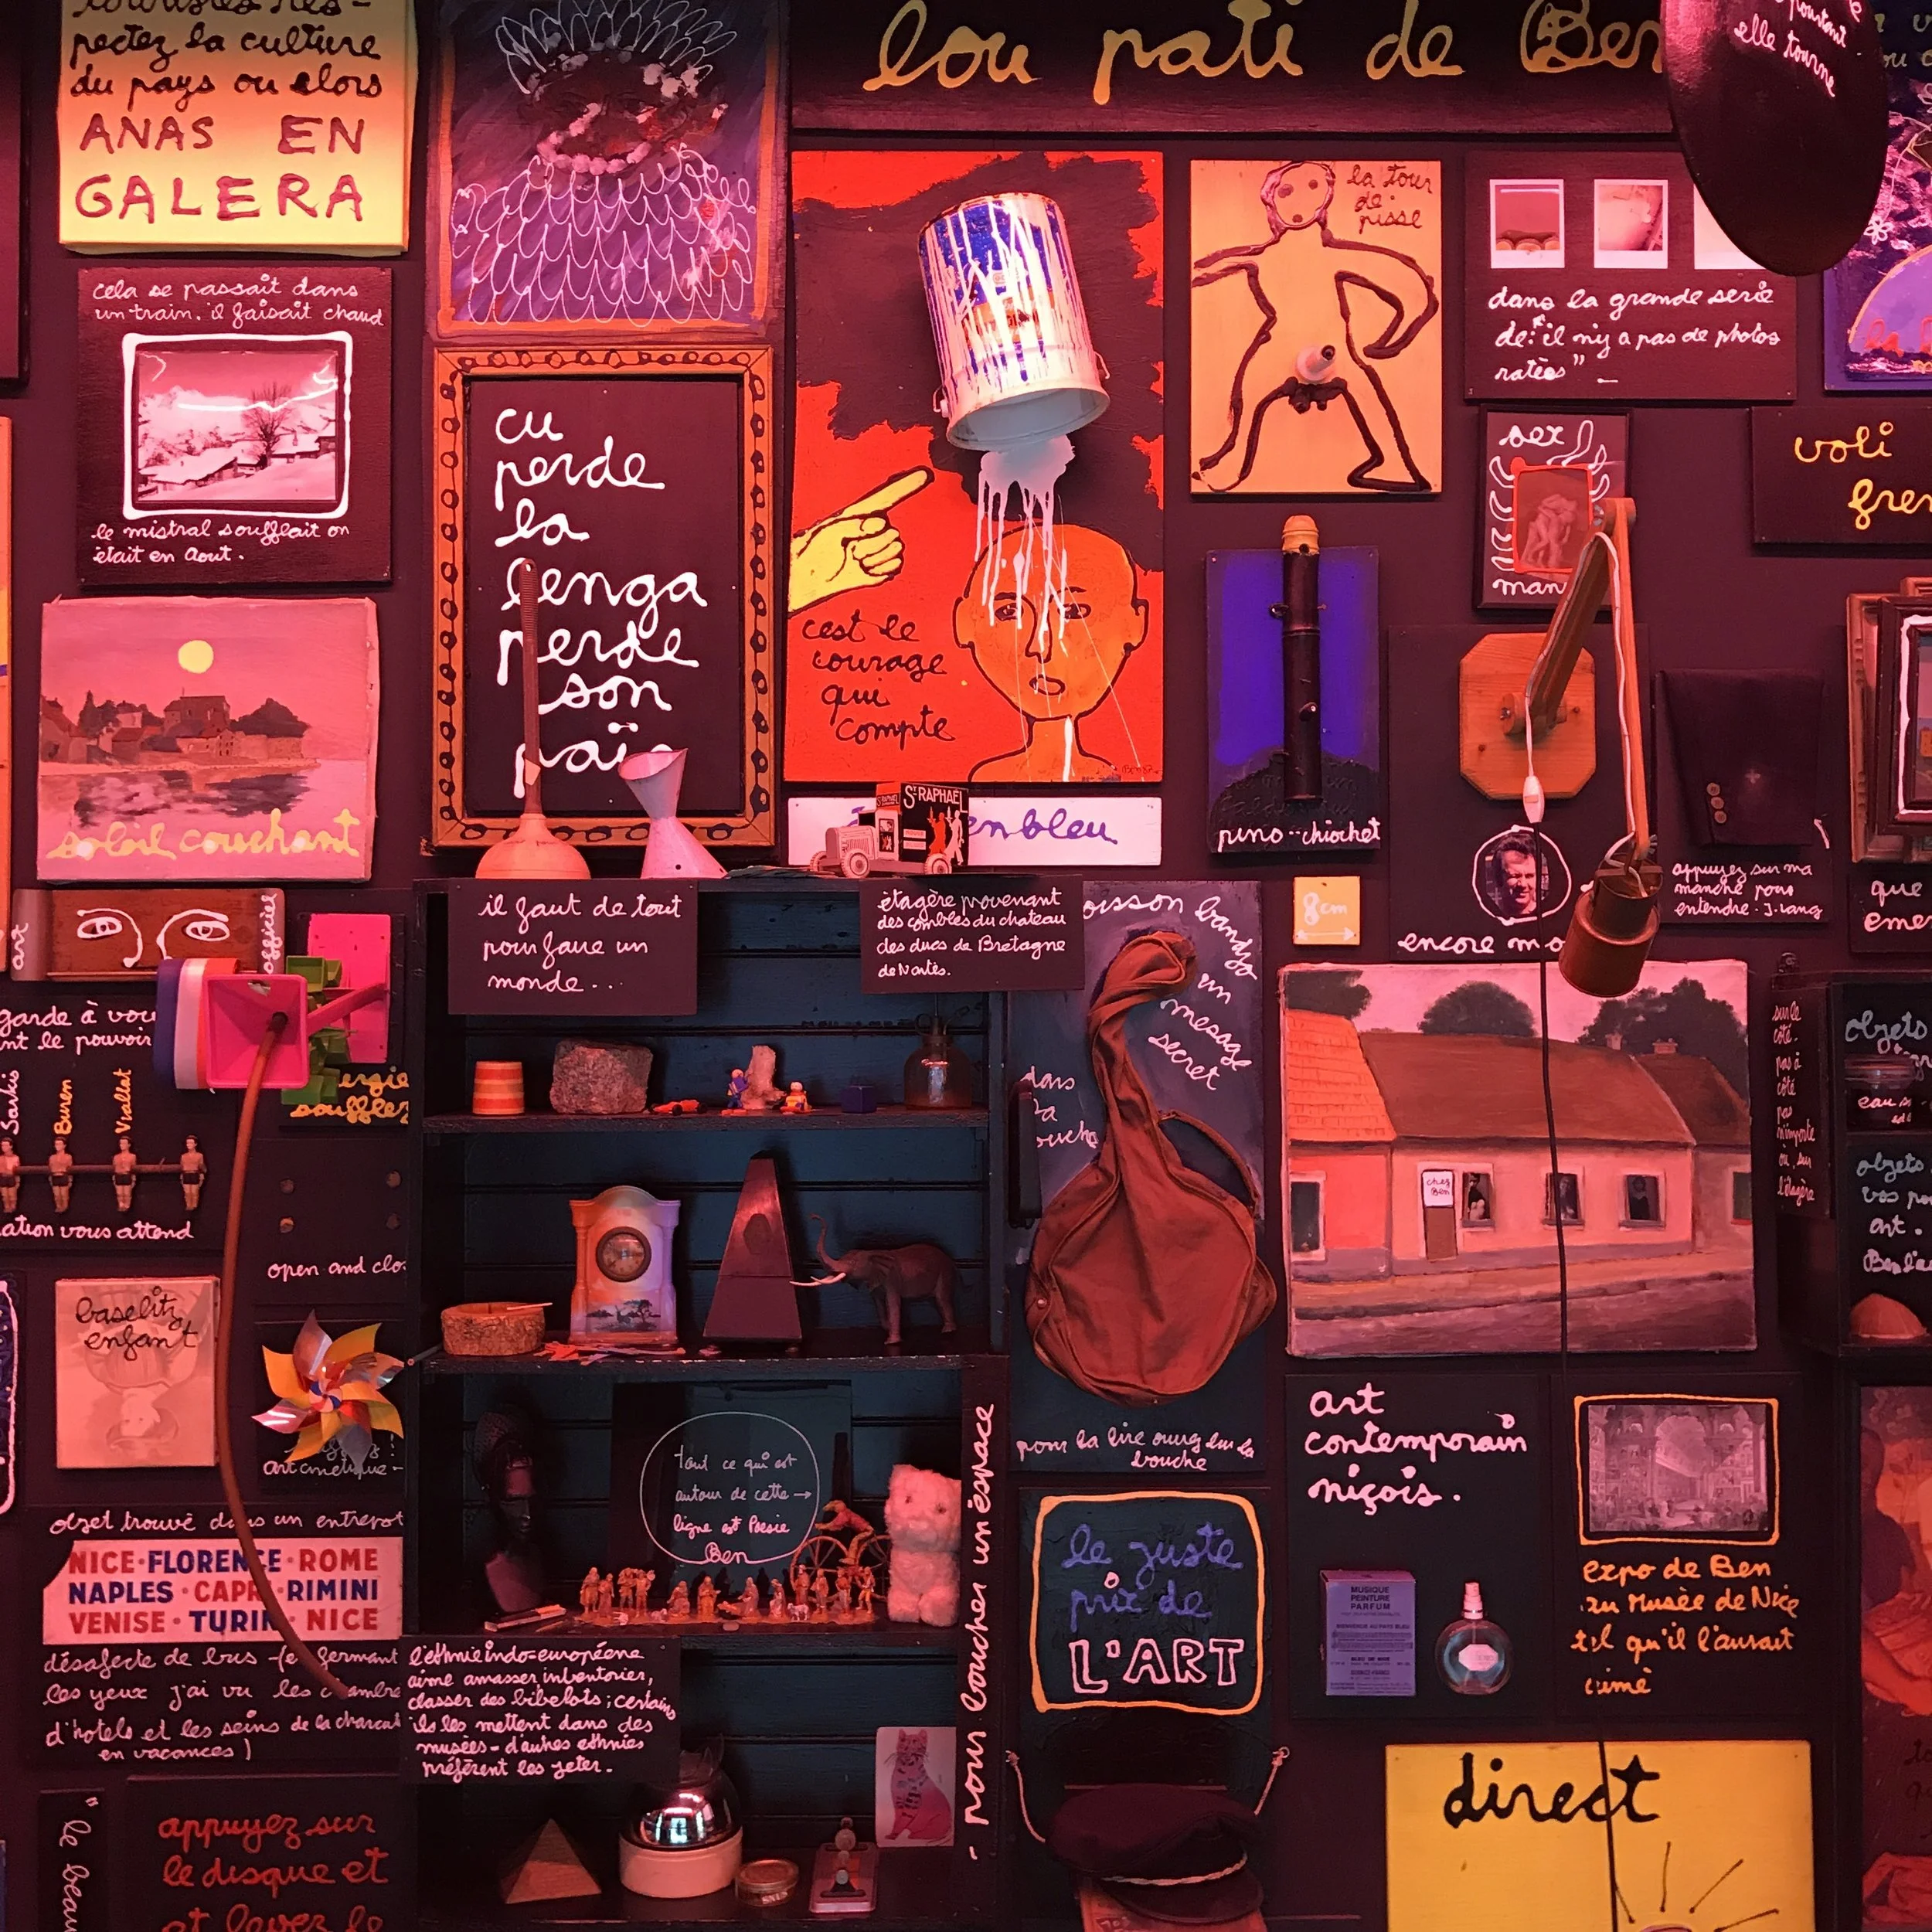 touristes res-
pectez la culture
du pays ou alors
ANAS EN
GALERA
lou pati de Ben
pourtant
elle tourne
cela se passait dans
un train. il faisait chaud
le mistral soufflait on
était en Aout.
cu
perde
la
lenga
perde
son
païs
c'est le
courage
qui
compte
Ben
la tour
de
pisse
dans la grande serie
de: "il n'y a pas de photos
ratées"
sex
man
voli
soleil couchant
ST RAPHAËL
en bleu
puno-chiochet
8cm
encore mo
appuyez sur ma
manche pour
entendre. J. Lang
que
eme
art
officiel
il faut de tout
pour faire un
monde...
étagère provenant
des combles du chateau
des ducs de Bretagne
de Nantes.
poisson bandga
un
message
secret
dans
sa
bouche
pour la lire ouvrez lui la
bouche
garde à vou
nt le pouvoir
Sarkis
Buren
Viallat
ation vous attend
ergie
soufflez
open and clo
chez
Ben
sur le
côté.
pas à
côté
pas
n'importe
où. sur
l'étagère
objets
eau
objets
vos
art.
Ben
baselitz
enfant
art cinétique -
tout ce qui est
autour de cette →
ligne est Poesie
Ben
- pour loucher un espace
art
contemporain
niçois.
MUSIQUE
PEINTURE
PARFUM
expo de Ben
au Musée de Nice
tel qu'il l'aurait
aimé
le juste
prix de
L'ART
objet trouvé dans un entrepot
NICE · FLORENCE · ROME
NAPLES · CAPRI · RIMINI
VENISE · TURIN · NICE
désafecté de bus - (en fermant
les yeux j'ai vu les chambres
d'hotels et les seins de la charcut
en vacances)
l'ethnie indo-européene
aime amasser inventorier,
classer des bibelots; certains
ils les mettent dans des
musées - d'autres ethnies
préfèrent les jeter.
"le beau
appuyez sur
le disque et
et levez le
direct